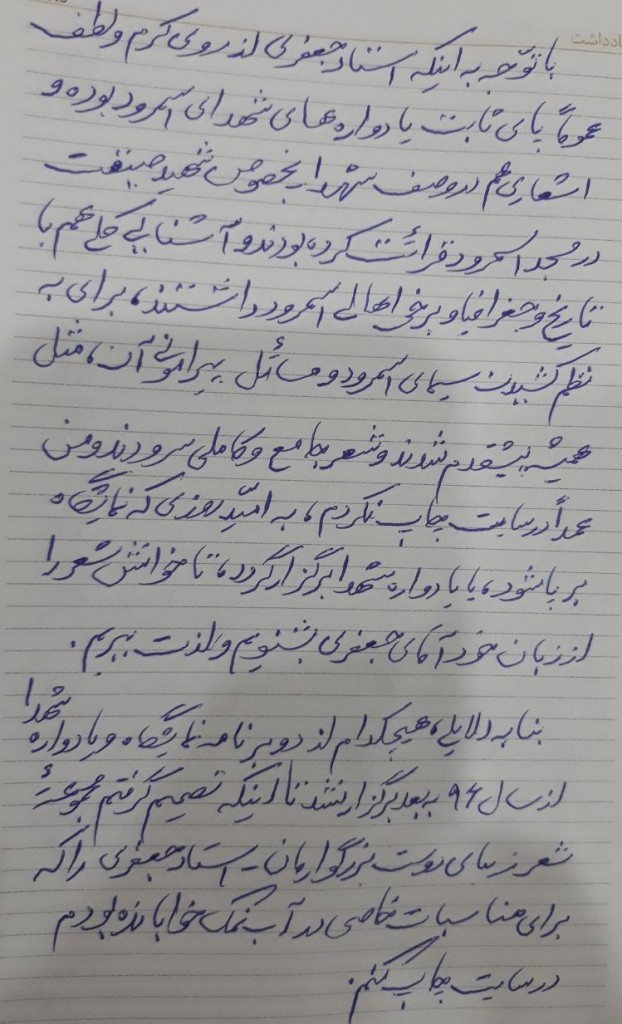 یادداشت
با توّجه به اینکه استاد جعفری از روی کرم و لطف
عموماً پای ثابت یادواره های شهدای اسمرود بوده و
اشعاری هم در وصف شهدا بخصوص شهید
در مسجد اسمرود قرائت کرده بودند و آشنایی کلی هم با
تاریخ و جغرافیا و برخی اهالی اسمرود داشتند، برای به
نظم کشیدن سیمای اسمرود و مسائل پیرامونی آن، مثل
همیشه پیشقدم شدند و شعر جامع و کاملی سرودند و من
عمداً در سایت چاپ نکردم، به امّید روزی که نمایشگاه
بر پا شود، یا یادواره شهدا برگزار گردد، تا خوانش شعر را
از زبان خود آقای جعفری بشنویم و لذت ببریم.
بنا به دلایلی، هیچکدام از دو برنامه نمایشگاه و یادواره شهدا
از سال ۹۶ به بعد برگزار نشد تا اینکه تصمیم گرفتم مجموعهٔ
شعر زیبای دوست بزرگوارمان - استاد جعفری را که
برای مناسبات خاصی در آب نمک خوابانده بودم
در سایت چاپ کنم.